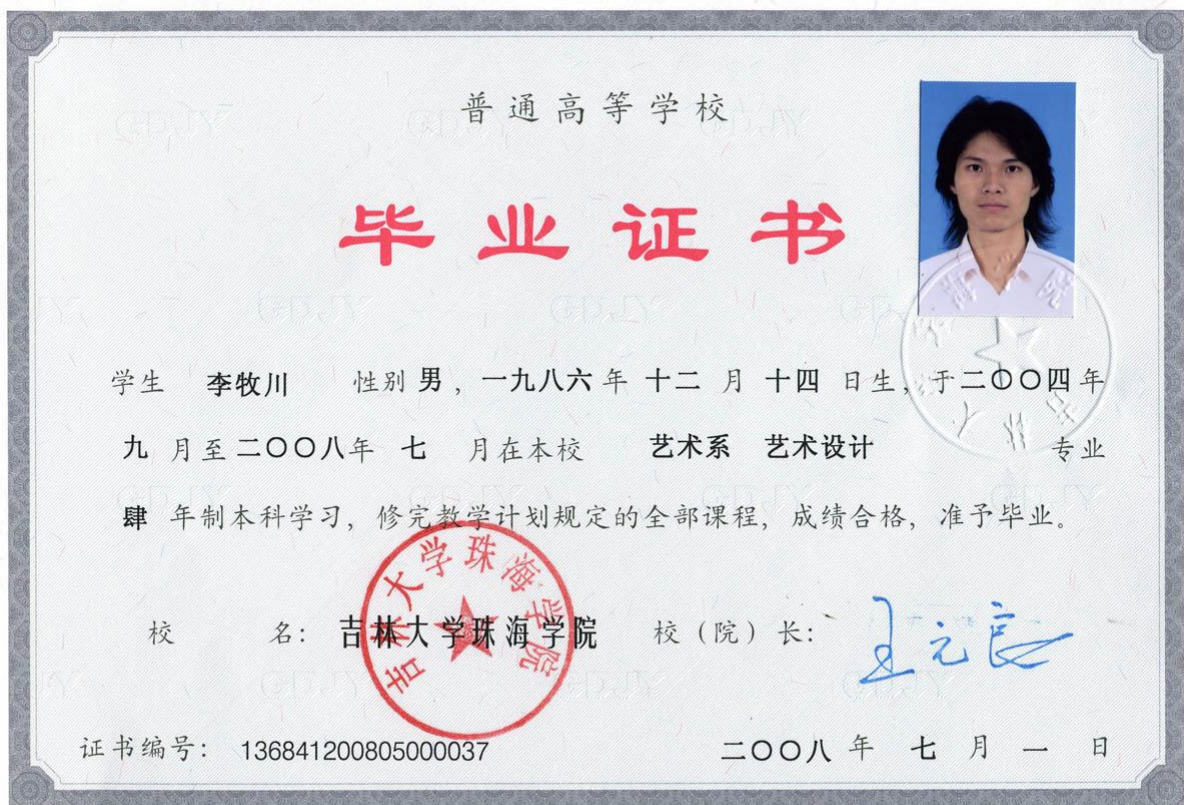 普通高等学校
毕业证书
学生 李牧川 性别 男，一九八六年 十二 月 十四 日生，于二〇〇四年
九 月至二〇〇八年 七 月在本校 艺术系 艺术设计 专业
肆 年制本科学习，修完教学计划规定的全部课程，成绩合格，准予毕业。
校 名：吉林大学珠海学院 校（院）长：王元良
吉林大学珠海学院
证书编号：136841200805000037 二〇〇八 年 七 月 一 日